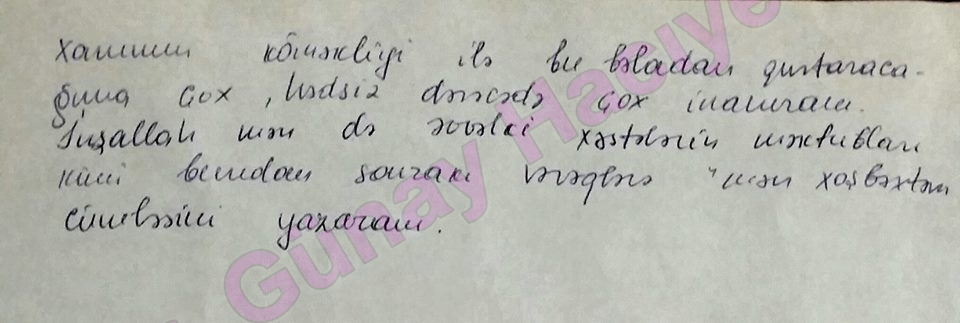 xanımın köməkliyi ilə bu bəladan qurtaraca-
ğıma çox, hədsiz dərəcədə çox inanıram.
İnşallah mən də əvvəlki xəstələrin məktubları
kimi bundan sonrakı vərəqlərə "mən xoşbəxtəm
cümləsini yazaram.
Günay Hacıye